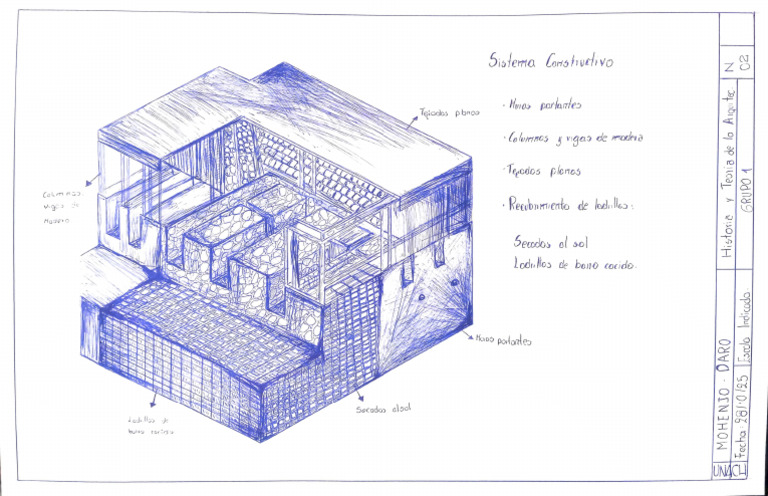 Sistema Constructivo
· Muros portantes
· Columnas y vigas de madera
· Tejados planos
· Recubrimiento de ladrillos:
Secados al sol
Ladrillos de barro cocido.
Tejados planos
Columnas
vigas de
madera
Muros portantes
Secados al sol
Ladrillos de
barro cocido
UNACH
MOHENJO - DARO
Fecha: 28/10/25
Escala: Indicada
Historia y Teoria de la Arquitec
GRUPO 1
N
02